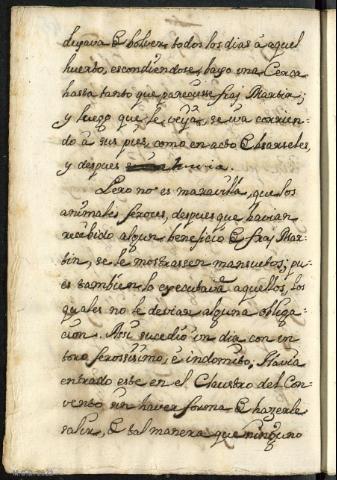 dejava de bolver todos los dias á aquel
huerto, escondiendose bajo una Cerca
hasta tanto que pareciesse fray Martin;
y luego que le veýa, se iva corrien-
do á sus pies, como en acto de besarseles,
y despues
Pero no es maravilla, que los
animales feroces, despues que havian
recibido algun beneficio de fray Mar-
tin, se le mostrassen mansuetos; pu-
es tambien lo executavan aquellos, los
quales no le devian alguna obliga-
cion. Assi sucedió un dia con un
toro ferossissimo, é indomito; Havia
entrado este en el Claustro del Con-
vento sin haver forma de hazerle
salir, de tal manera que ninguno